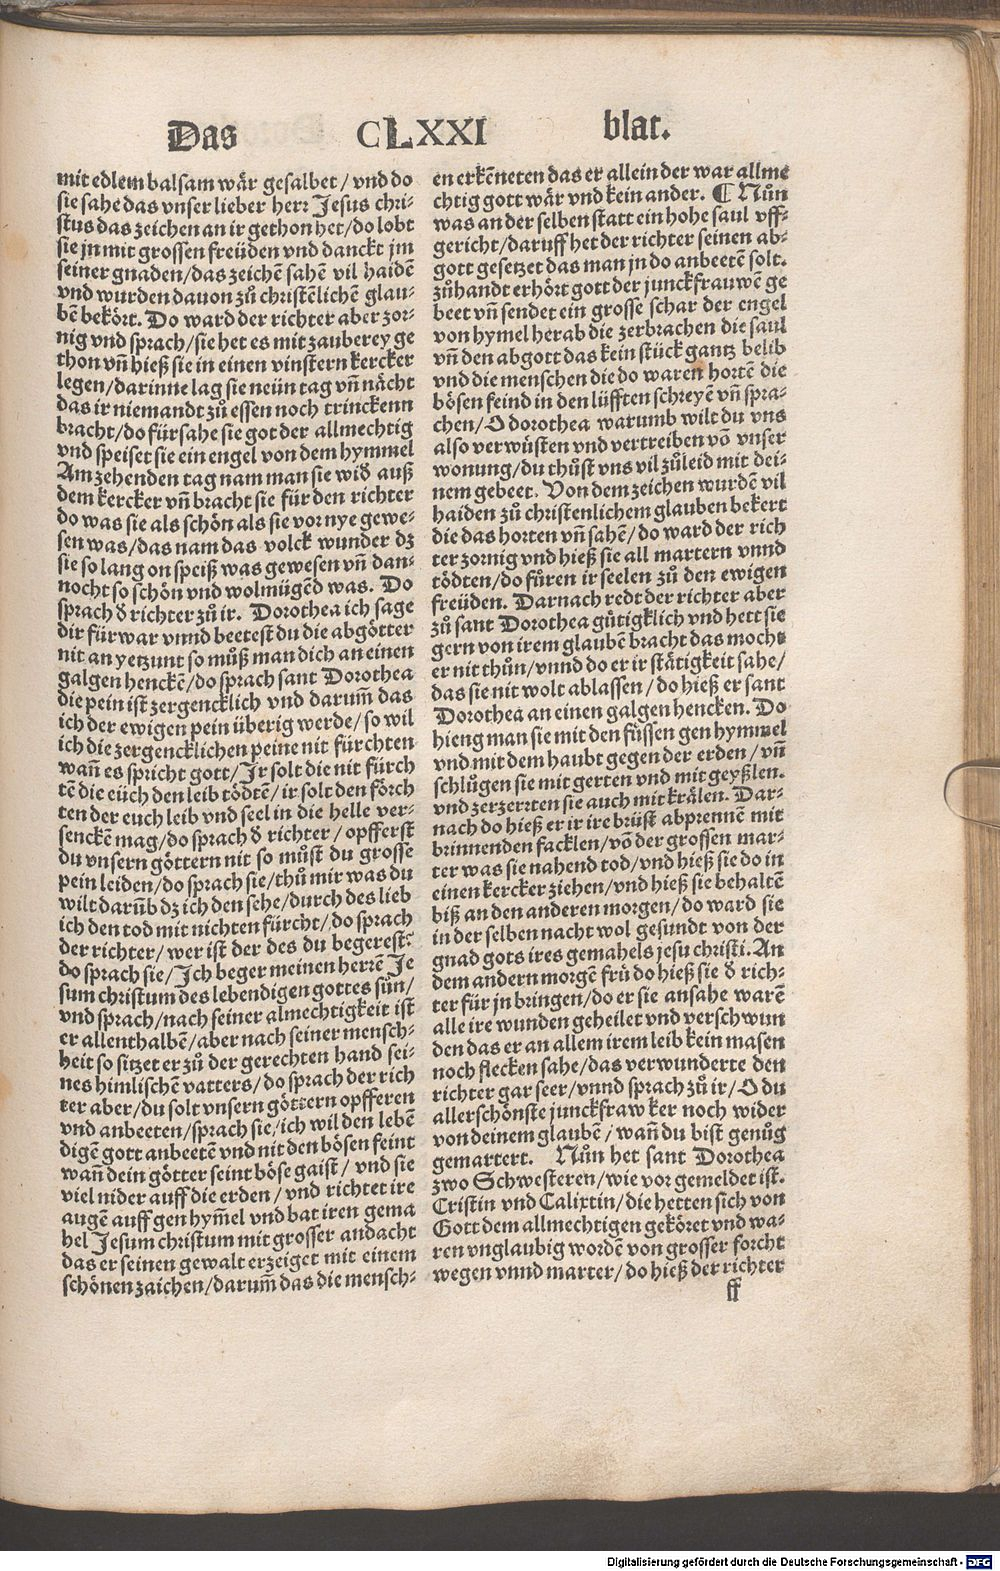 Das CLXXI blat.
mit edlem balsam wär gesalbet / vnd do
sie sahe das vnser lieber herr Jesus chri-
stus das zeichen an ir gethon het / do lobt
sie jn mit grossen freüden vnd danckt jm
seiner gnaden / das zeichē sahē vil haidē
vnd wurden dauon zů christēlichē glau-
bē bekört. Do ward der richter aber zor-
nig vnd sprach / sie het es mit zauberey ge
thon vñ hieß sie in einen vinstern kercker
legen / darinne lag sie neün tag vñ nächt
das ir niemandt zů essen noch trinckenn
bracht / do fürsahe sie got der allmechtig
vnd speiset sie ein engel von dem hymmel
Am zehenden tag nam man sie wið auß
dem kercker vñ bracht sie für den richter
do was sie als schön als sie vor nye gewe-
sen was / das nam das volck wunder dz
sie so lang on speiß was gewesen vñ dan-
nocht so schön vnd wolmügēd was. Do
sprach ð richter zů ir. Dorothea ich sage
dir fürwar vnnd beetest du die abgötter
nit an yetzunt so můß man dich an einen
galgen henckē / do sprach sant Dorothea
die pein ist zergencklich vnd darum̄ das
ich der ewigen pein überig werde / so wil
ich die zergencklichen peine nit fürchten
wañ es spricht gott / Ir solt die nit fürch
tē die eüch den leib tödtē / ir solt den förch
ten der euch leib vnd seel in die helle ver-
senckē mag / do sprach ð richter / opfferst
du vnsern göttern nit so můst du grosse
pein leiden / do sprach sie / thů mir was du
wilt darūb dz ich den sehe / durch des lieb
ich den tod mit nichten fürcht / do sprach
der richter / wer ist der des du begerest?
do sprach sie / Ich beger meinen herrē Je
sum christum des lebendigen gottes sůn /
vnd sprach / nach seiner almechtigkeit ist
er allenthalbē / aber nach seiner mensch-
heit so sitzet er zů der gerechten hand sei-
nes himlischē vatters / do sprach der rich
ter aber / du solt vnsern göttern opfferen
vnd anbeeten / sprach sie / ich wil den lebē
digē gott anbeetē vnd nit den bösen feint
wañ dein götter seint böse gaist / vnd sie
viel nider auff die erden / vnd richtet ire
augē auff gen hym̄el vnd bat iren gema
hel Jesum christum mit grosser andacht
das er seinen gewalt erzeiget mit einem
schönen zaichen / darum̄ das die mensch-
en erkēneten das er allein der war allme
chtig gott wär vnd kein ander. ¶ Nůn
was an der selben statt ein hohe saul vff-
gericht / daruff het der richter seinen ab-
gott gesetzet das man jn do anbeetē solt.
zůhandt erhört gott der junckfrauwē ge
beet vñ sendet ein grosse schar der engel
von hymel herab die zerbrachen die saul
vñ den abgott das kein stück gantz belib
vnd die menschen die do waren hortē die
bösen feind in den lüfften schreyē vñ spra-
chen / O dorothea warumb wilt du vns
also verwüsten vnd vertreiben vō vnser
wonung / du thůst vns vil zůleid mit dei-
nem gebeet. Von dem zeichen wurdē vil
haiden zů christenlichem glauben bekert
die das horten vñ sahē / do ward der rich
ter zornig vnd hieß sie all martern vnnd
tödten / do fůren ir seelen zů den ewigen
freüden. Darnach redt der richter aber
zů sant Dorothea gütigklich vnd hett sie
gern von irem glaubē bracht das mocht
er nit thůn / vnnd do er ir stätigkeit sahe /
das sie nit wolt ablassen / do hieß er sant
Dorothea an einen galgen hencken. Do
hieng man sie mit den füssen gen hymmel
vnd mit dem haubt gegen der erden / vñ
schlůgen sie mit gerten vnd mit geyßlen.
vnd zerzerrten sie auch mit krälen. Dar-
nach do hieß er ir ire brüst abprennē mit
brinnenden facklen / vō der grossen mar-
ter was sie nahend tod / vnd hieß sie do in
einen kercker ziehen / vnd hieß sie behaltē
biß an den anderen morgen / do ward sie
in der selben nacht wol gesundt von der
gnad gots ires gemahels jesu christi. An
dem andern morgē frü do hieß sie ð rich-
ter für jn bringen / do er sie ansahe warē
alle ire wunden geheilet vnd verschwun
den das er an allem irem leib kein masen
noch flecken sahe / das verwunderte den
richter gar seer / vnnd sprach zů ir / O du
allerschönste junckfraw ker noch wider
von deinem glaubē / wañ du bist genůg
gemartert. Nůn het sant Dorothea
zwo Schwesteren / wie vor gemeldet ist.
Cristin vnd Calixtin / die hetten sich von
Gott dem allmechtigen geköret vnd wa-
ren vnglaubig wordē von grosser forcht
wegen vnnd marter / do hieß der richter
ff
Digitalisierung gefördert durch die Deutsche Forschungsgemeinschaft - DFG